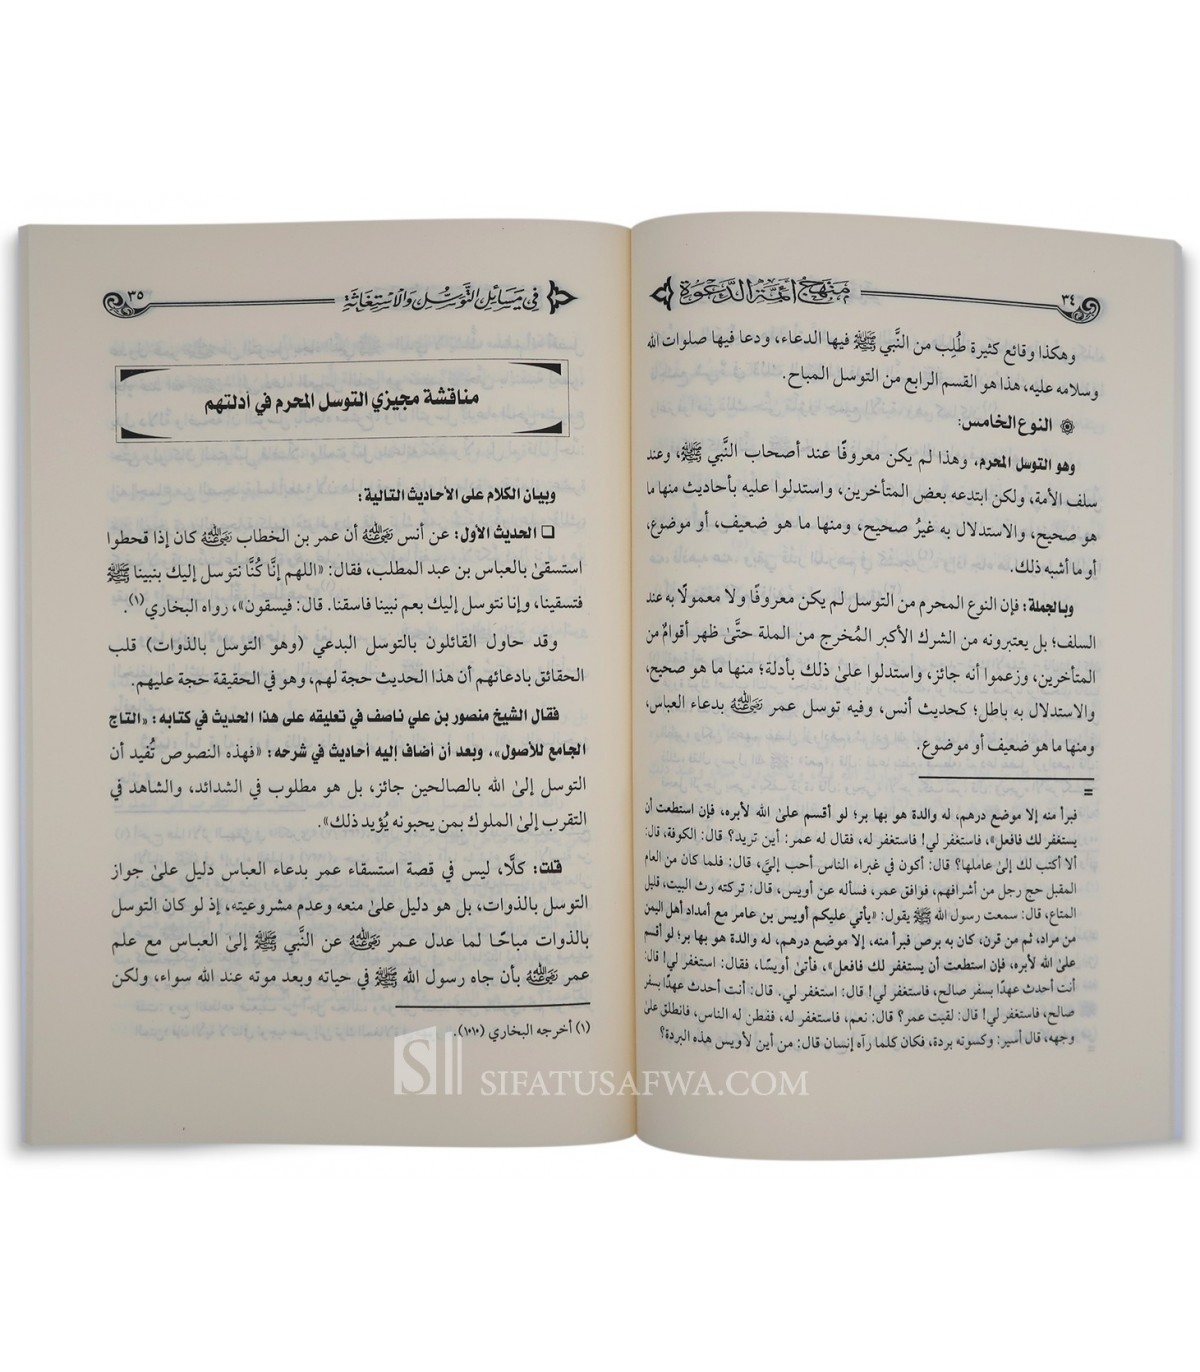 ٣٤
منهج أئمة الدعوة
وهكذا وقائع كثيرة طُلِب من النَّبي ﷺ فيها الدعاء، ودعا فيها صلوات الله
وسلامه عليه، هذا هو القسم الرابع من التوسل المباح.
۞ النوع الخامس:
وهو التوسل المحرم، وهذا لم يكن معروفًا عند أصحاب النَّبي ﷺ، وعند
سلف الأمة، ولكن ابتدعه بعض المتأخرين، واستدلوا عليه بأحاديث منها ما
هو صحيح، والاستدلال به غيرُ صحيح، ومنها ما هو ضعيف، أو موضوع،
أو ما أشبه ذلك.
وبالجملة: فإن النوع المحرم من التوسل لم يكن معروفًا ولا معمولًا به عند
السلف؛ بل يعتبرونه من الشرك الأكبر المُخرج من الملة حتَّىٰ ظهر أقوامٌ من
المتأخرين، وزعموا أنه جائز، واستدلوا علىٰ ذلك بأدلة؛ منها ما هو صحيح،
والاستدلال به باطل؛ كحديث أنس، وفيه توسل عمر رضي الله عنه بدعاء العباس،
ومنها ما هو ضعيف أو موضوع.
=
فبرأ منه إلا موضع درهم، له والدة هو بها بر؛ لو أقسم علىٰ الله لأبره، فإن استطعت أن
يستغفر لك فافعل»، فاستغفر لي! فاستغفر له، فقال له عمر: أين تريد؟ قال: الكوفة، قال:
ألا أكتب لك إلىٰ عاملها؟ قال: أكون في غبراء الناس أحب إليَّ، قال: فلما كان من العام
المقبل حج رجل من أشرافهم، فوافق عمر، فسأله عن أويس، قال: تركته رث البيت، قليل
المتاع، قال: سمعت رسول الله ﷺ يقول: «يأتي عليكم أويس بن عامر مع أمداد أهل اليمن
من مراد، ثم من قرن، كان به برص فبرأ منه، إلا موضع درهم، له والدة هو بها بر؛ لو أقسم
علىٰ الله لأبره، فإن استطعت أن يستغفر لك فافعل»، فأتىٰ أويسًا، فقال: استغفر لي! قال:
أنت أحدث عهدًا بسفر صالح، فاستغفر لي! قال: استغفر لي. قال: أنت أحدث عهدًا بسفر
صالح، فاستغفر لي! قال: لقيت عمر؟ قال: نعم، فاستغفر له، ففطن له الناس، فانطلق علىٰ
وجهه، قال أسير: وكسوته بردة، فكان كلما رآه إنسان قال: من أين لأويس هذه البردة؟
في مسائل التوسل والاستغاثة
٣٥
مناقشة مجيزي التوسل المحرم في أدلتهم
وبيان الكلام على الأحاديث التالية:
❑ الحديث الأول: عن أنس رضي الله عنه أن عمر بن الخطاب رضي الله عنه كان إذا قحطوا
استسقىٰ بالعباس بن عبد المطلب، فقال: «اللهم إنَّا كُنَّا نتوسل إليك بنبينا ﷺ
فتسقينا، وإنا نتوسل إليك بعم نبينا فاسقنا. قال: فيسقون»، رواه البخاري(١).
وقد حاول القائلون بالتوسل البدعي (وهو التوسل بالذوات) قلب
الحقائق بادعائهم أن هذا الحديث حجة لهم، وهو في الحقيقة حجة عليهم.
فقال الشيخ منصور بن علي ناصف في تعليقه على هذا الحديث في كتابه: «التاج
الجامع للأصول»، وبعد أن أضاف إليه أحاديث في شرحه: «فهذه النصوص تُفيد أن
التوسل إلىٰ الله بالصالحين جائز، بل هو مطلوب في الشدائد، والشاهد في
التقرب إلىٰ الملوك بمن يحبونه يُؤيد ذلك».
قلت: كلَّا، ليس في قصة استسقاء عمر بدعاء العباس دليل علىٰ جواز
التوسل بالذوات، بل هو دليل علىٰ منعه وعدم مشروعيته، إذ لو كان التوسل
بالذوات مباحًا لما عدل عمر رضي الله عنه عن النَّبي ﷺ إلىٰ العباس مع علم
عمر رضي الله عنه بأن جاه رسول الله ﷺ في حياته وبعد موته عند الله سواء، ولكن
(١) أخرجه البخاري (١٠١٠).
SIFATUSAFWA.COM